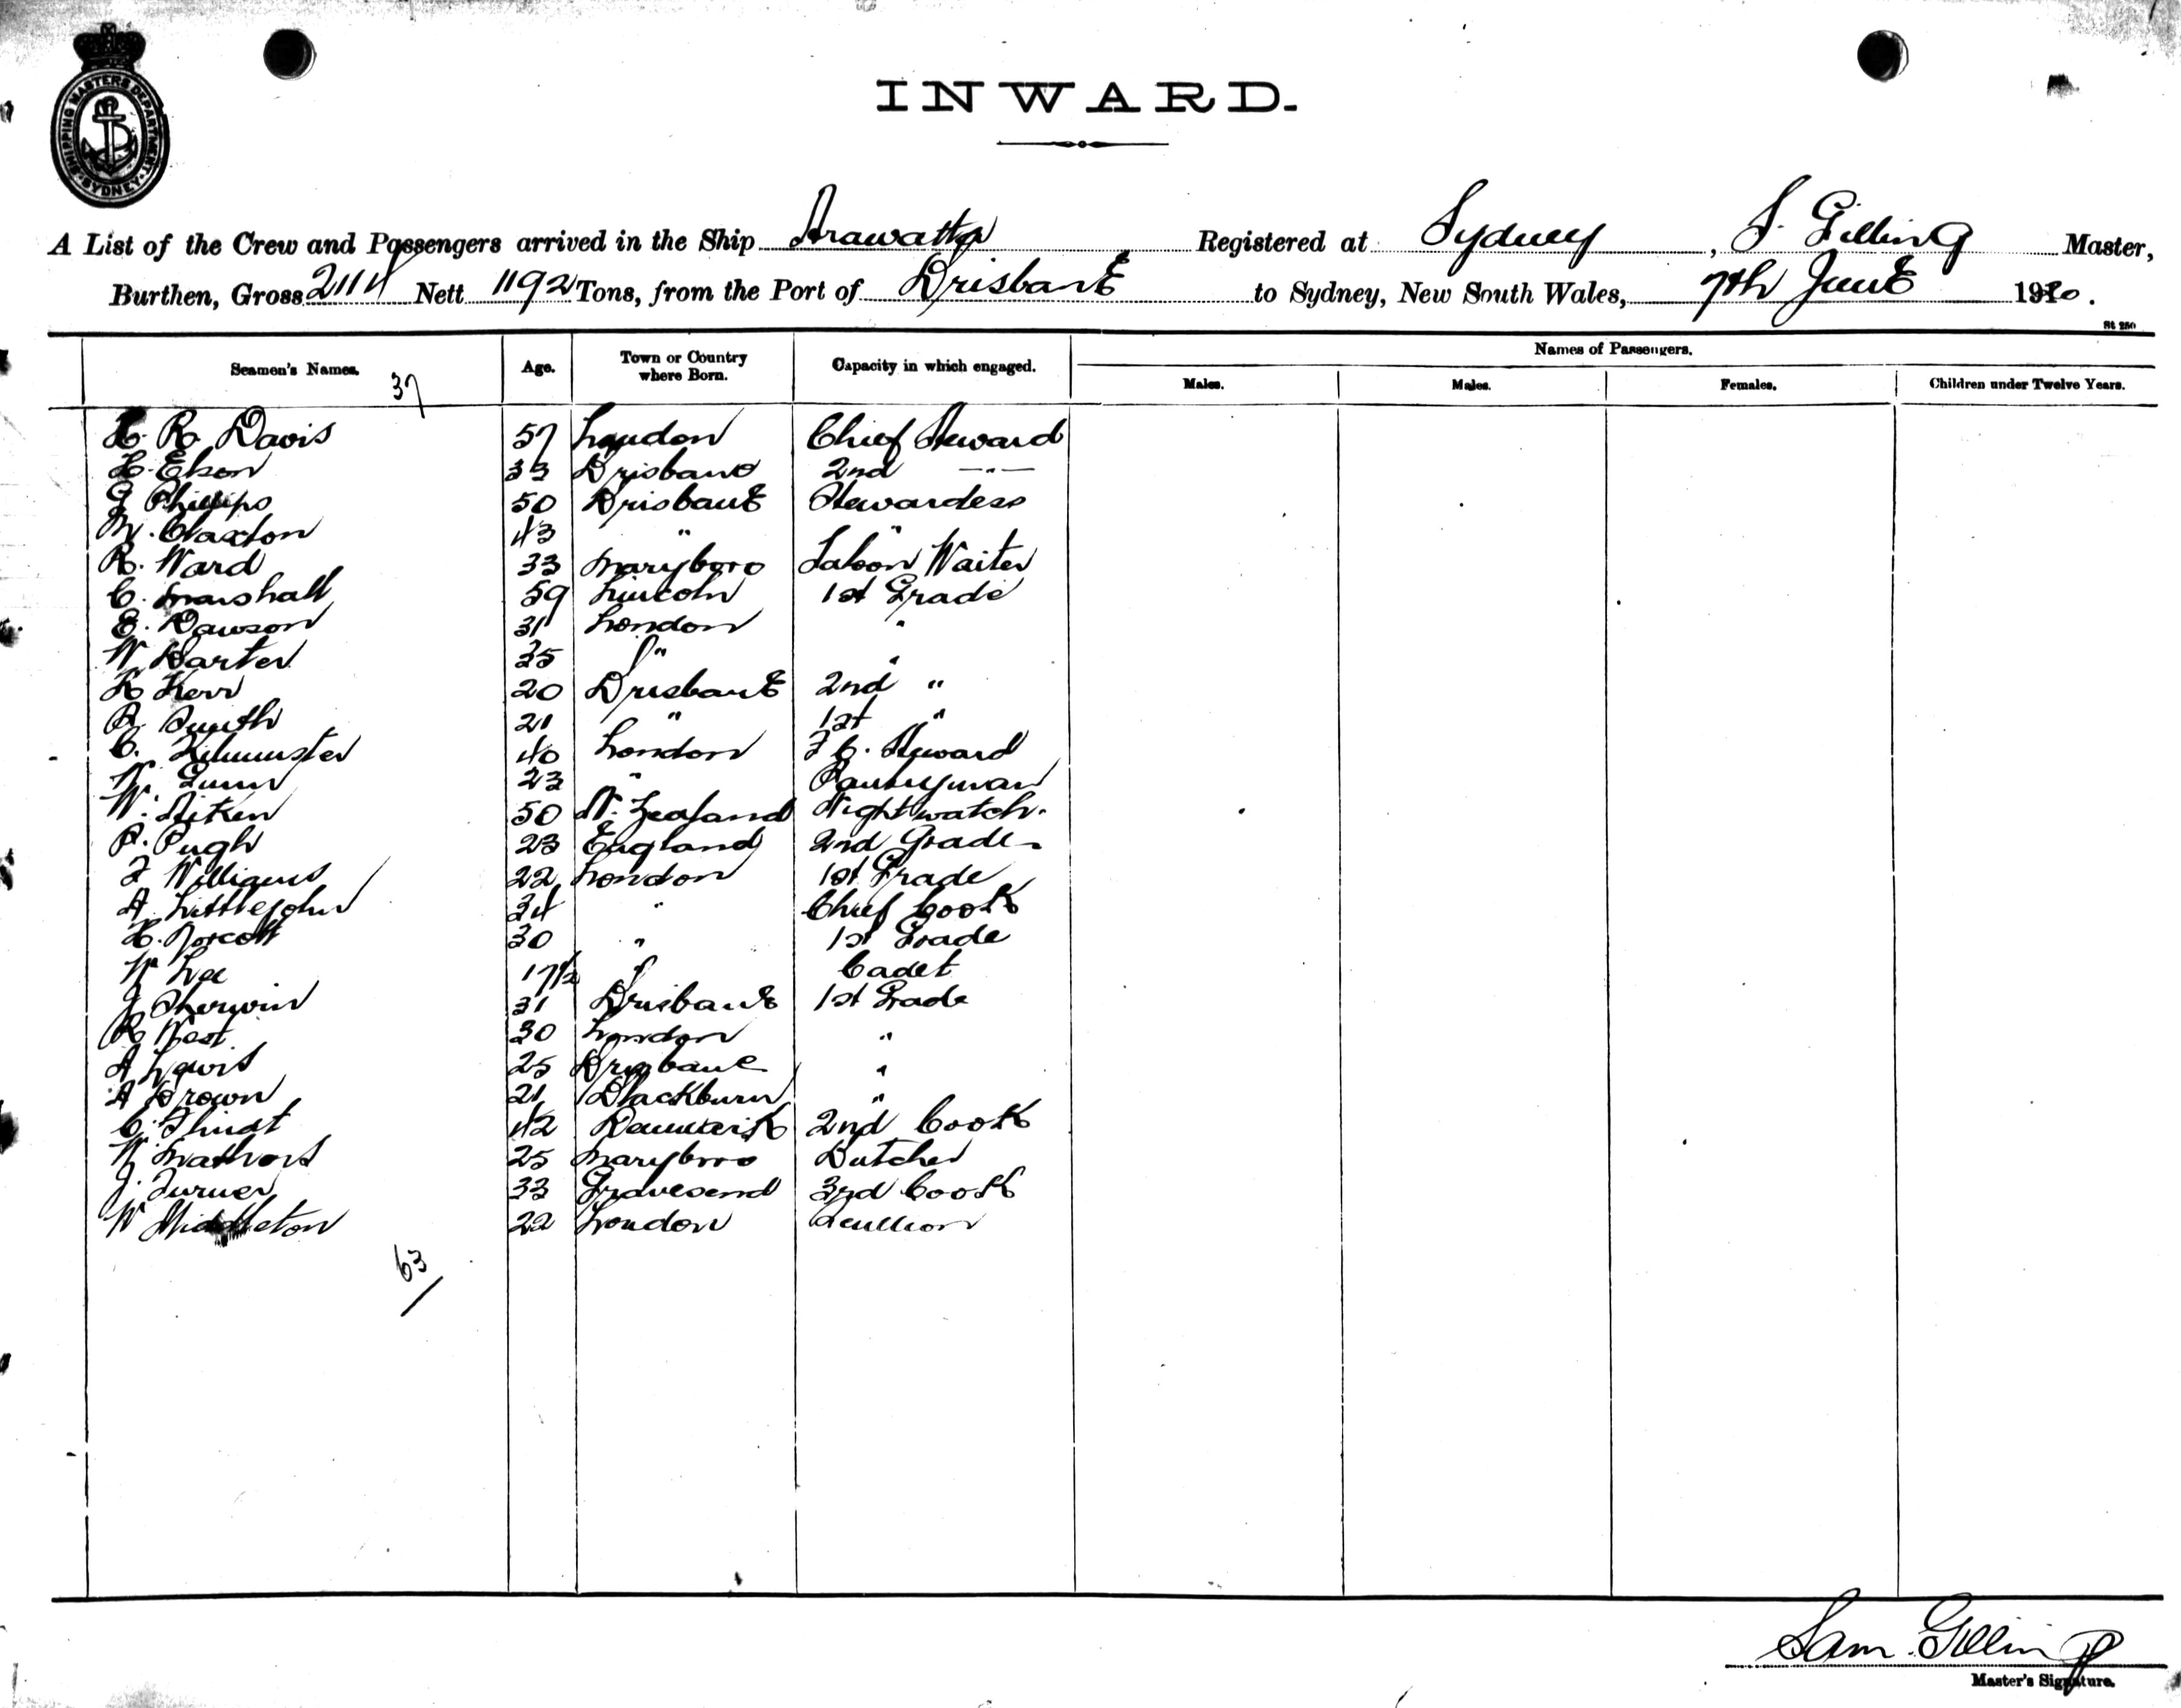 SHIPPING MASTERS DEPARTMENT. SYDNEY.
INWARD.
A List of the Crew and Passengers arrived in the Ship Arawatta Registered at Sydney, S. Gilling Master,
Burthen, Gross 2114 Nett 1192 Tons, from the Port of Brisbane to Sydney, New South Wales, 7th June 1920.
St 250
Seamen's Names. 37 Age. Town or Country where Born. Capacity in which engaged. Names of Passengers.
Males. Males. Females. Children under Twelve Years.
H. R. Davis 57 London Chief Steward
H. Elson 33 Brisbane 2nd —"—
J Phillips 50 Brisbane Stewardess
M. Claxton 43 " "
R. Ward 33 Maryboro Saloon Waiter
C. Marshall 59 Lincoln 1st Grade
E. Dawson 31 London "
W Barter 35 " "
H Kerr 20 Brisbane 2nd "
R Smith 21 " 1st "
C. Kilminster 40 London F C. Steward
W. Gunn 23 " Pantryman
W. Aitken 50 N. Zealand Nightwatch.
P. Pugh 23 England 2nd Grade
F Williams 22 London 1st Grade
A. Littlejohn 34 " Chief Cook
H. Norcott 30 " 1st Grade
W Lee 17½ " Cadet
J Sherwin 31 Brisbane 1st Grade
R West 30 London "
A Lewis 25 Brisbane "
A Brown 21 Blackburn "
C. 42 Denmark 2nd Cook
W 25 Maryboro Butcher
J. Turner 33 Gravesend 3rd Cook
W Middleton 22 London Scullion
63
Sam. Gilling
Master's Signature.